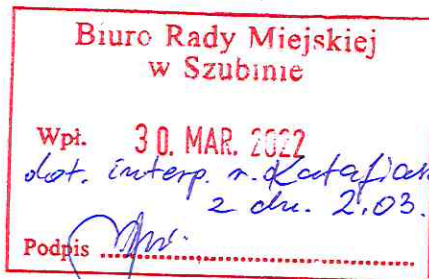 Biuro Rady Miejskiej
w Szubinie
Wpł. 30. MAR. 2022
dot. interp. r. Katafiasz
z dn. 2.03.
Podpis